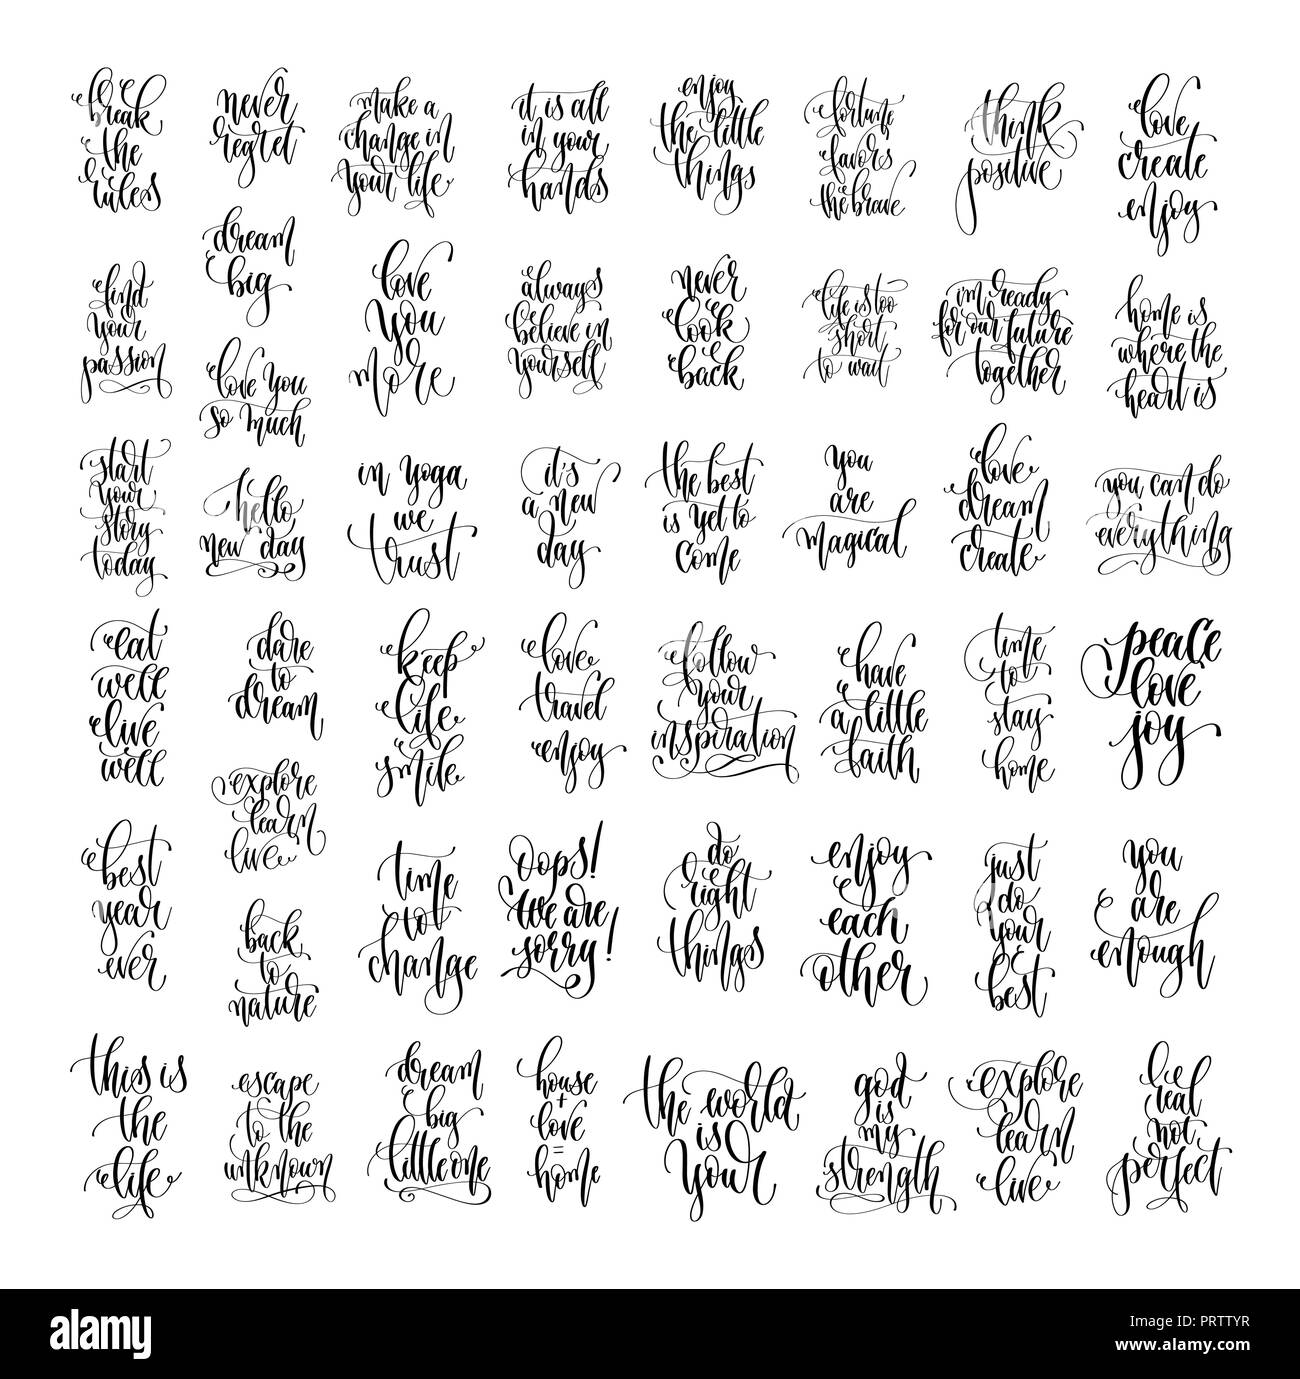 break
the
rules
never
regret
make a
change in
your life
it is all
in your
hands
enjoy
the little
things
fortune
favors
the brave
think
positive
love
create
enjoy
dream
big
find
your
passion
love
you
more
always
believe in
yourself
never
look
back
life is too
short
to wait
i'm ready
for our future
together
home is
where the
heart is
love you
so much
start
your
story
today
hello
new day
in yoga
we
trust
it's
a new
day
the best
is yet to
come
you
are
magical
love
dream
create
you can do
everything
eat
well
live
well
dare
to
dream
keep
life
smile
love
travel
enjoy
follow
your
inspiration
have
a little
faith
time
to
stay
home
peace
love
joy
explore
learn
live
best
year
ever
time
to
change
Oops!
We are
sorry!
do
right
things
enjoy
each
other
just
do
your
best
you
are
enough
back
to
nature
this is
the
life
escape
to the
unknown
dream
big
little one
house
+
love
=
home
the world
is
your
god
is
my
strength
explore
learn
live
be
real
not
perfect
alamy
Image ID: PRTTYR
www.alamy.com